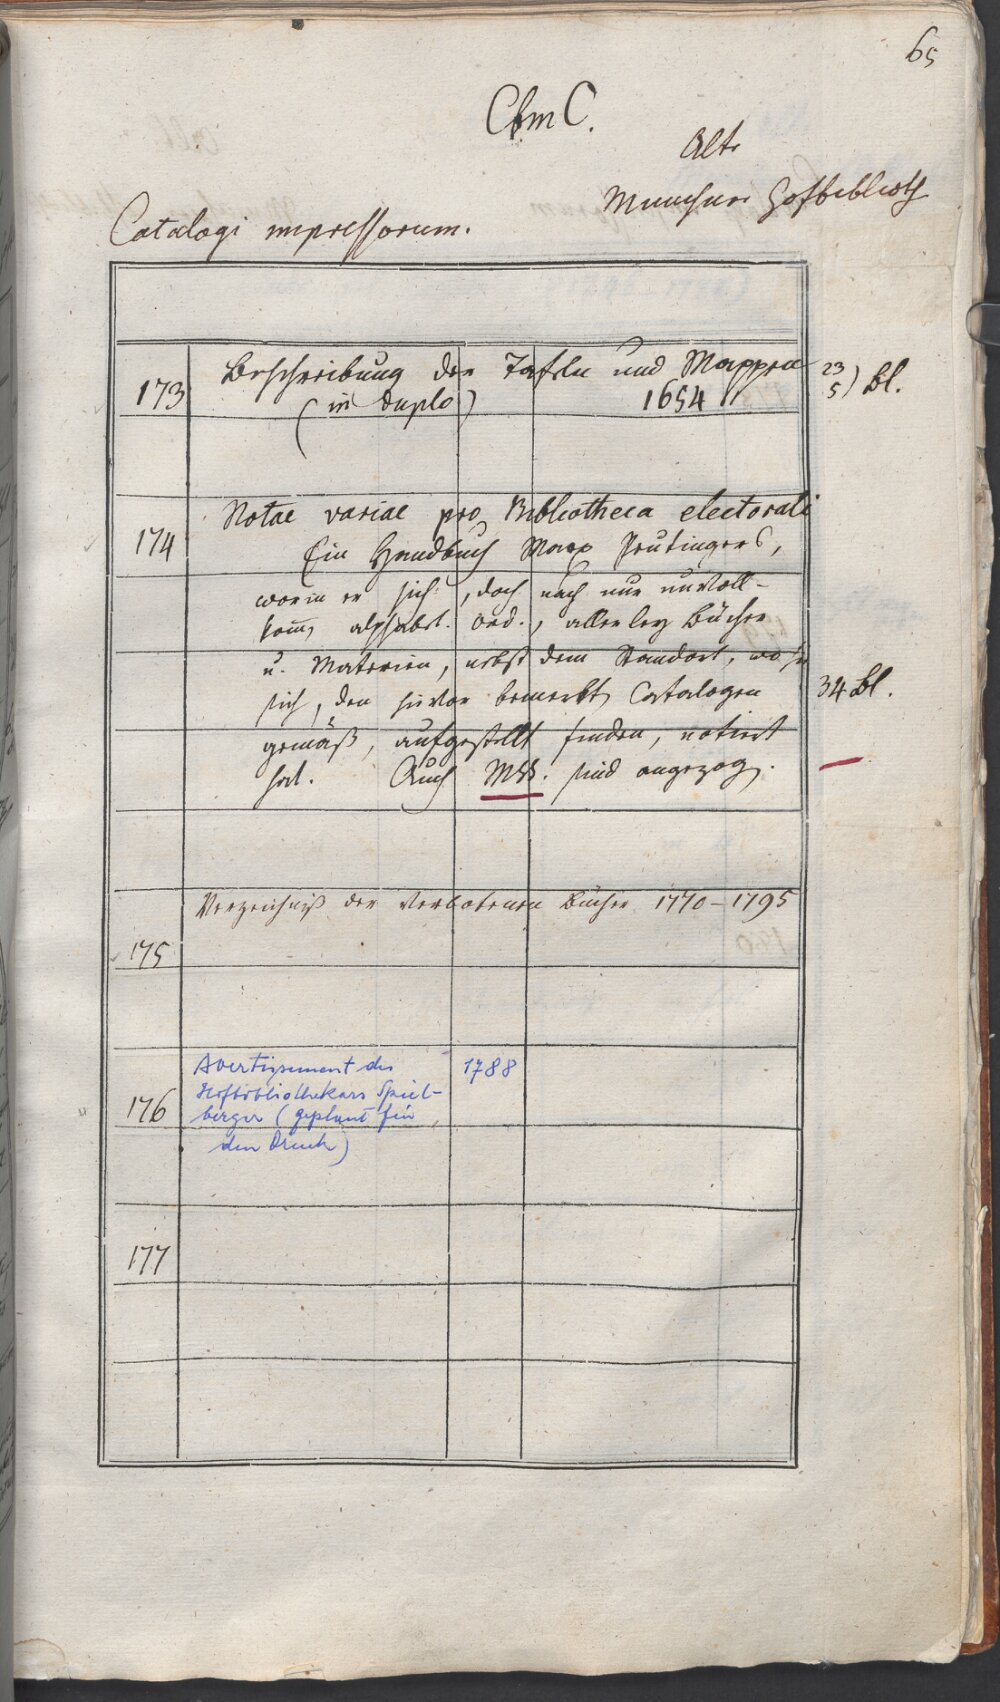 65
Cbm C.
Alte
Münchner Hofbiblioth
Catalogi impressorum.
173 Beschreibung der Tafeln und Mappen 23
(in duplo) 1654 5) Bl.
Notae variae pro Bibliotheca electorali
174 Ein Handbuch Marx Peutingers,
worin er sich, doch nach nur unvoll-
kom̄ alphabet. Ord., allerley Bücher
u. Materien, nebst dem Standort, wo sie
sich, den zuvor bemerkt Catalogen 34 Bl.
gemäß, aufgestellt finden, notirt
hat. Auch MSS. sind angezog.
Verzeichniß der verbotenen Bücher 1770-1795
175
Avertissement des 1788
Hofbibliothekars Spiel-
176 berger (geplant für
den Druck)
177